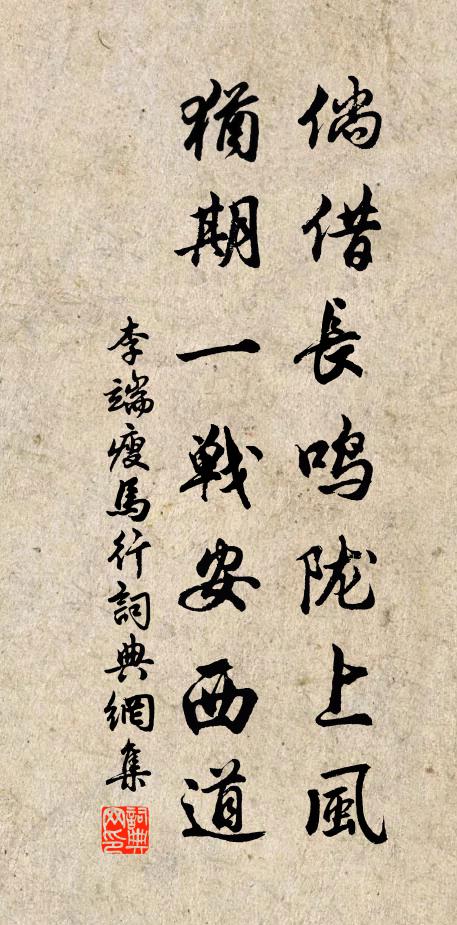 倘借長鳴陇上風
猶期一戰安西道
李端瘦馬行詞典網集
詞典网印